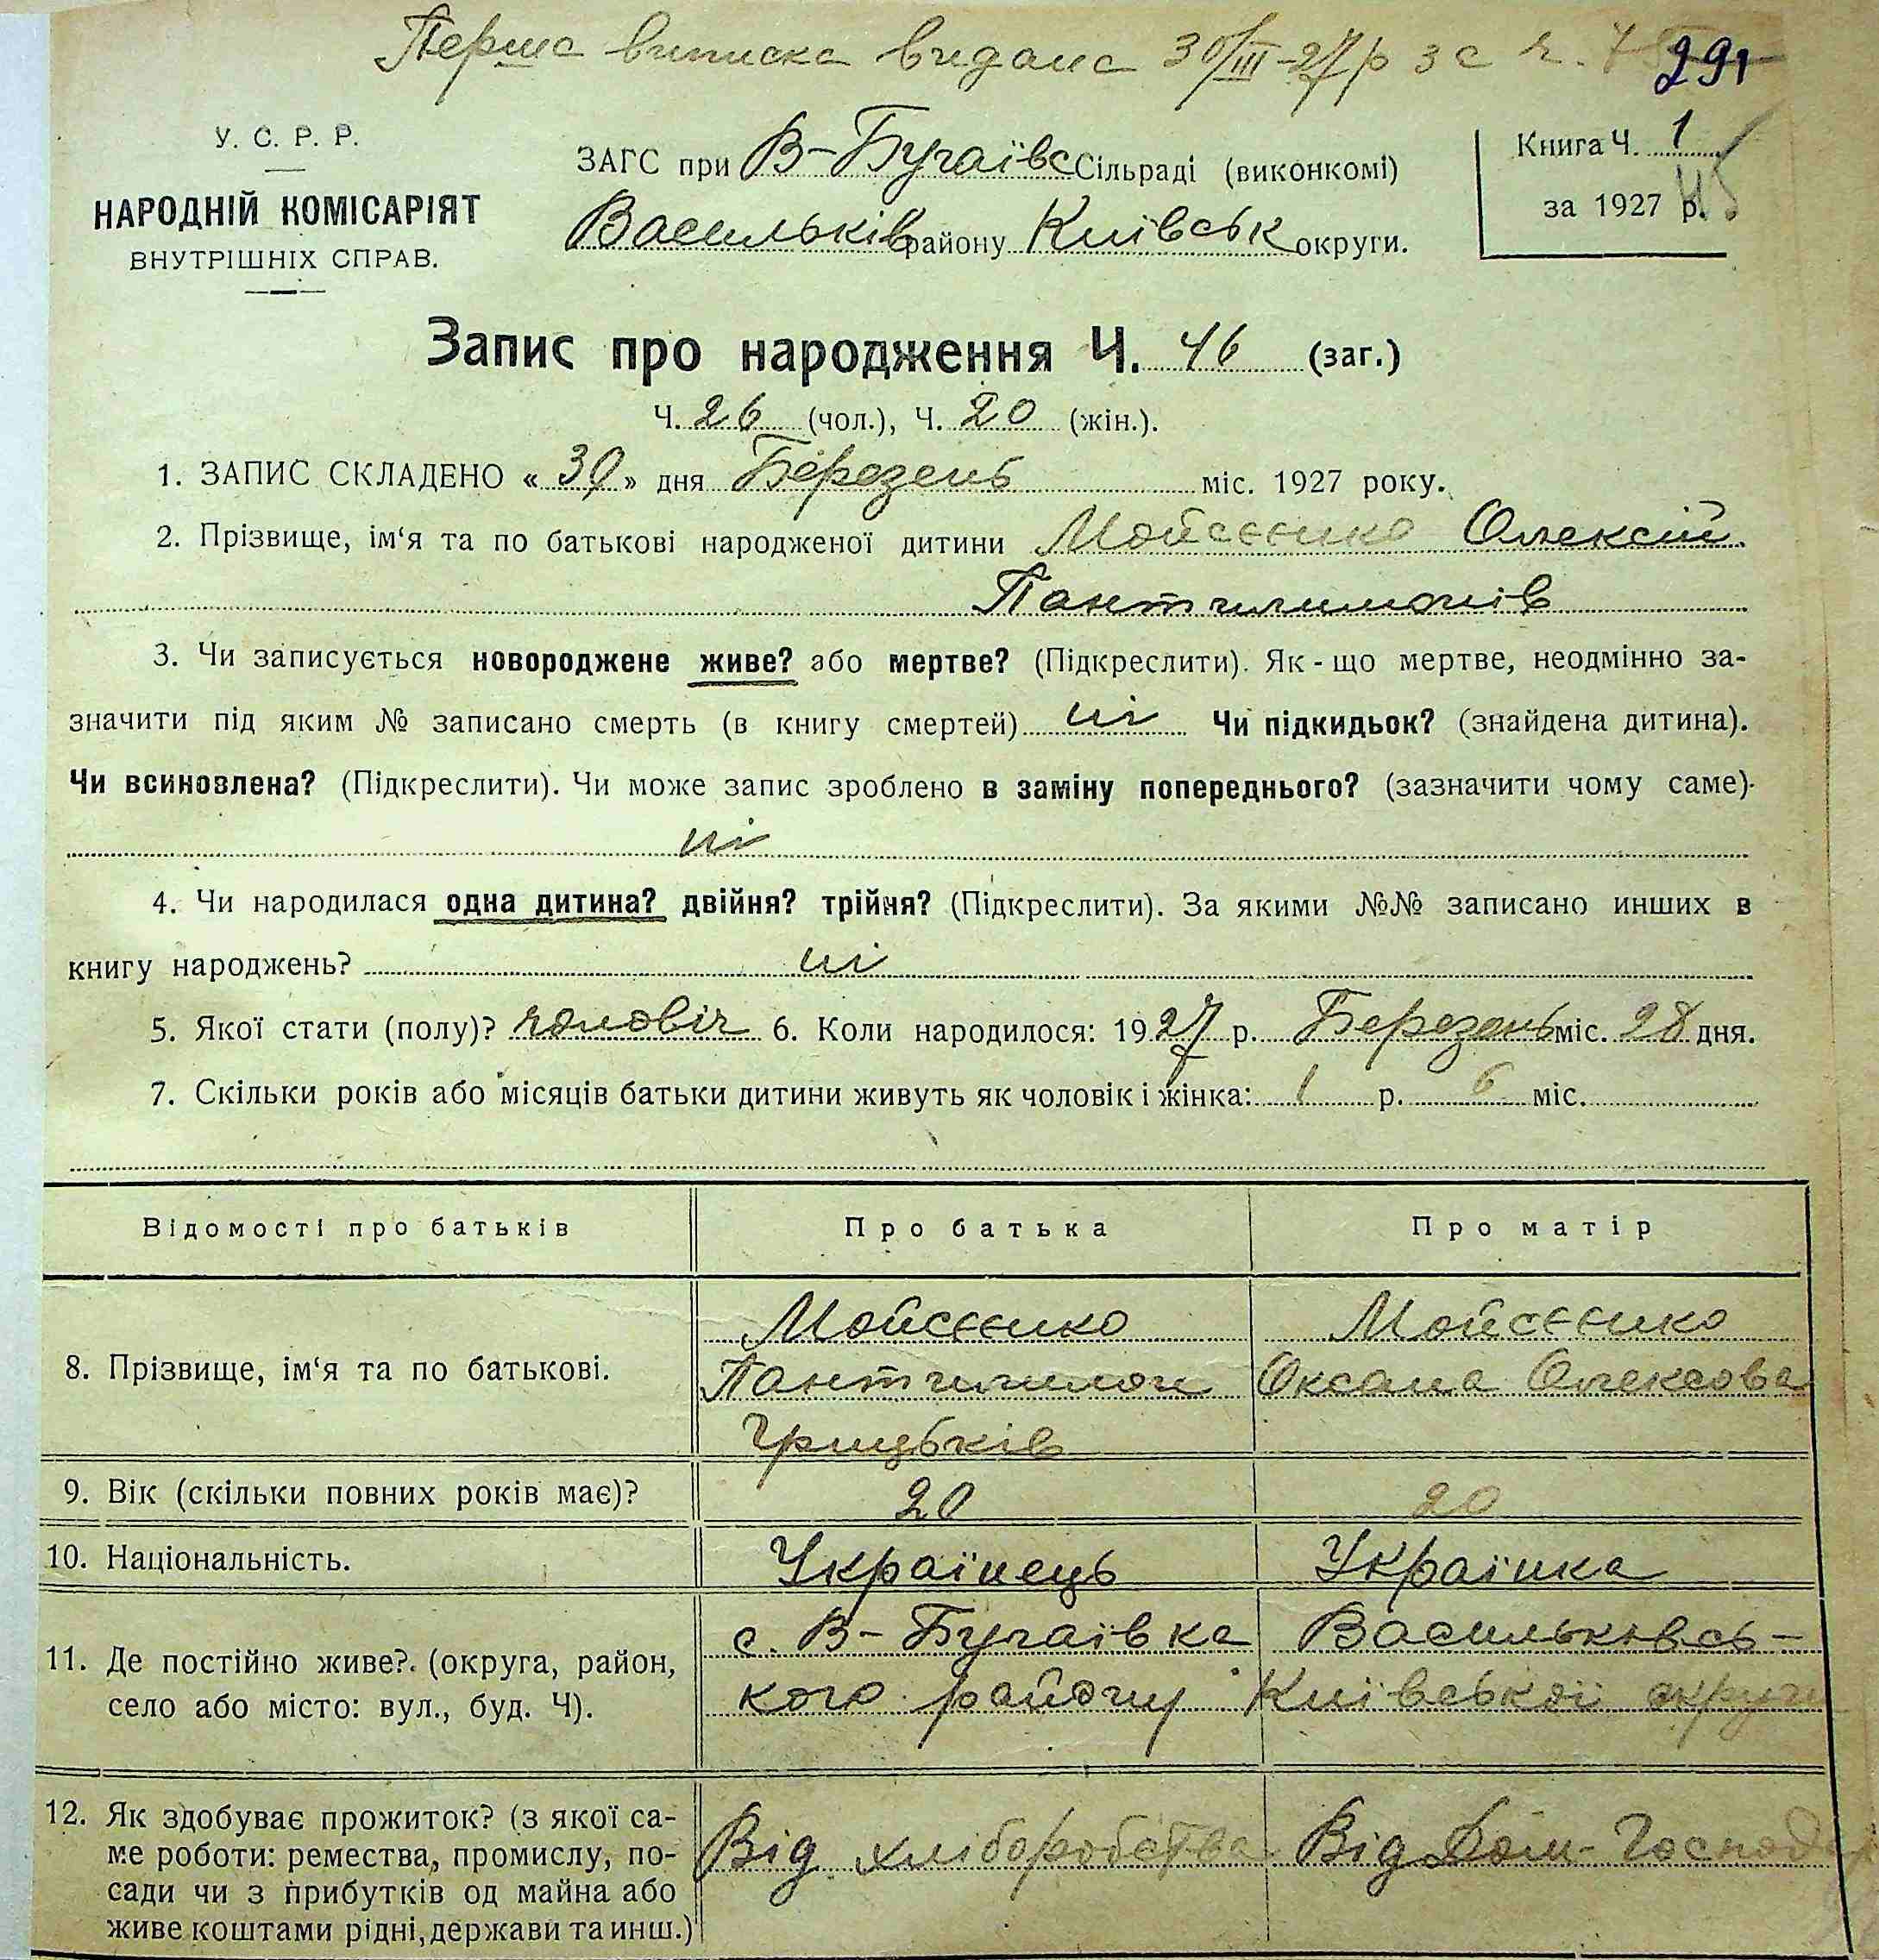 Перша виписка видана 30/III-27р за ч.
291
У. С. Р. Р.
НАРОДНІЙ КОМІСАРІЯТ
ВНУТРІШНІХ СПРАВ.
ЗАГС при В-Бугаївс Сільраді (виконкомі)
Васильків району Київськ округи.
Книга Ч. 1
за 1927 р.
45
Запис про народження Ч. 46 (заг.)
Ч. 26 (чол.), Ч. 20 (жін.).
1. ЗАПИС СКЛАДЕНО « 30 » дня Березень міс. 1927 року.
2. Прізвище, ім‘я та по батькові народженої дитини Мойсєєнко Олексій
Пантилимонів
3. Чи записується новороджене живе? або мертве? (Підкреслити). Як-що мертве, неодмінно за-
значити під яким № записано смерть (в книгу смертей) ні Чи підкидьок? (знайдена дитина).
Чи всиновлена? (Підкреслити). Чи може запис зроблено в заміну попереднього? (зазначити чому саме).
ні
4. Чи народилася одна дитина? двійня? трійня? (Підкреслити). За якими №№ записано инших в
книгу народжень? ні
5. Якої стати (полу)? чоловіч 6. Коли народилося: 1927 р. Березень міс. 28 дня.
7. Скільки років або місяців батьки дитини живуть як чоловік і жінка: 1 р. 6 міс.
Відомості про батьків Про батька Про матір
8. Прізвище, ім‘я та по батькові.
Мойсєєнко
Пантилимон
Грицьків
Мойсєєнко
Оксана Олексова
9. Вік (скільки повних років має)? 20 20
10. Національність. Українець Українка
11. Де постійно живе?. (округа, район,
село або місто: вул., буд. Ч).
с. В-Бугаівка Васильковсь-
кого району Киівськоі округи
12. Як здобуває прожиток? (з якої са-
ме роботи: ремества, промислу, по-
сади чи з прибутків од майна або
живе коштами рідні, держави та инш.)
Від хліборобства Від Дом-Господар